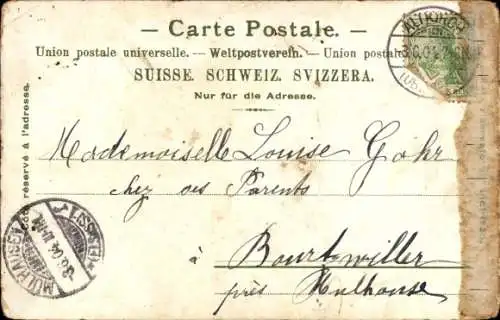 — Carte Postale. —
Union postale universelle. — Weltpostverein. — Union postale
SUISSE. SCHWEIZ. SVIZZERA.
Nur für die Adresse.
Côté réservé à l'adresse.
Mademoiselle Louise Gohr
chez ses Parents
à Bourtzwiller
près Mulhouse
MÜLHAUSEN